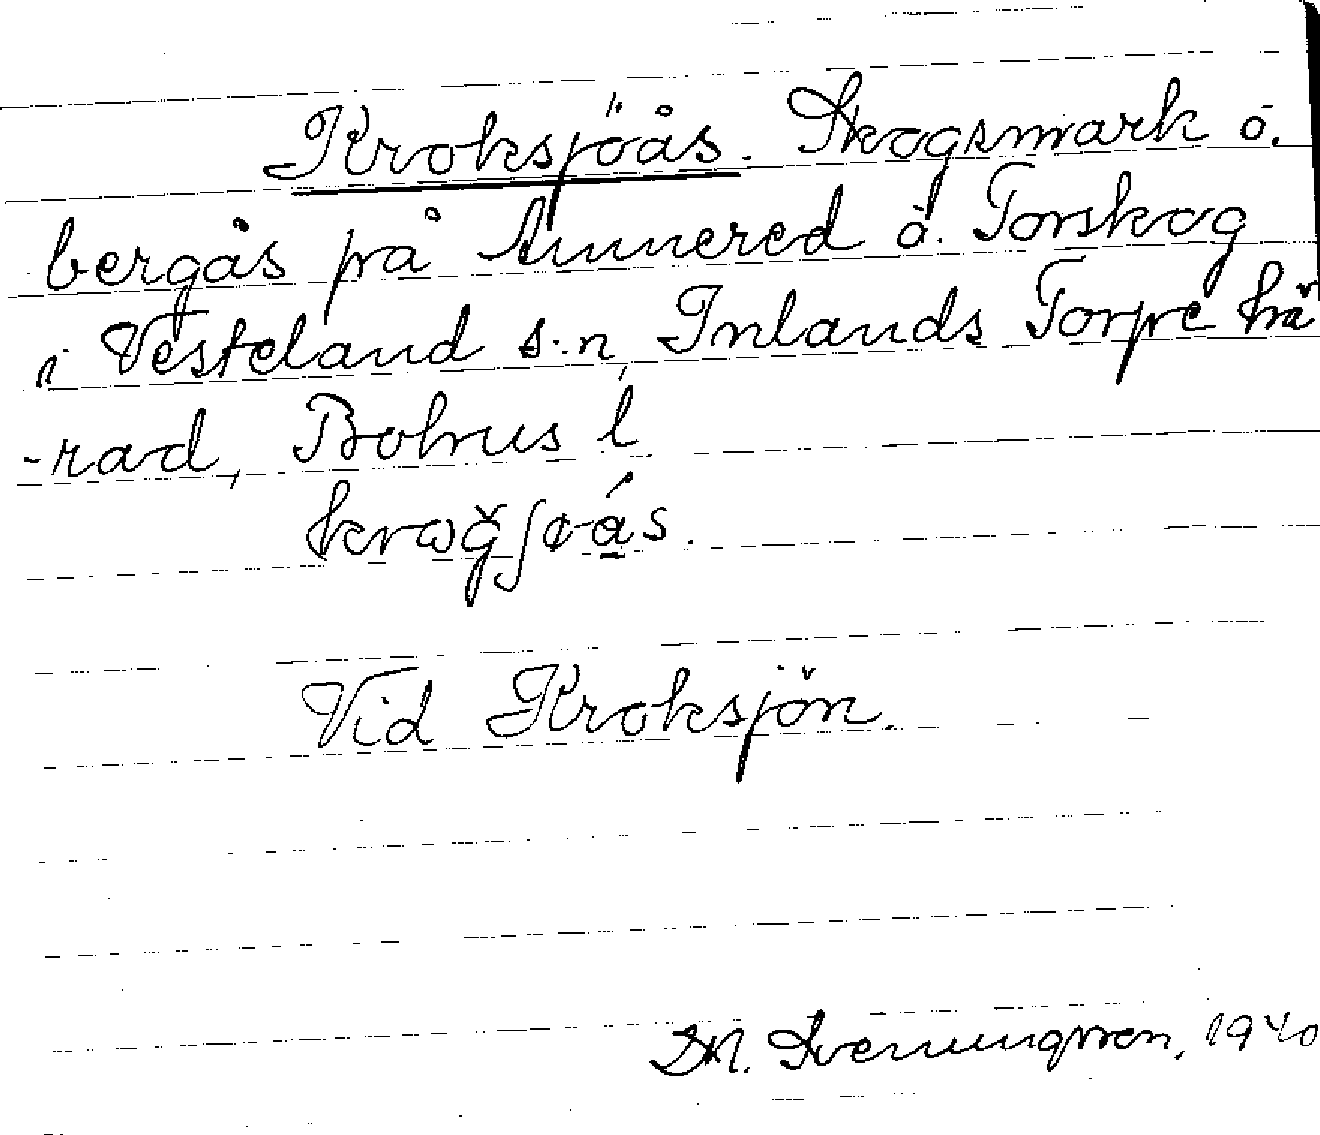 Kroksjöås. Skogsmark o.
bergås påUnnered o. Torskog
i Vesteland s:n, Inlands Torpe hä
-rad, Bohus l.
Vid Kroksjön.
D.N. Svenungsson, 1940